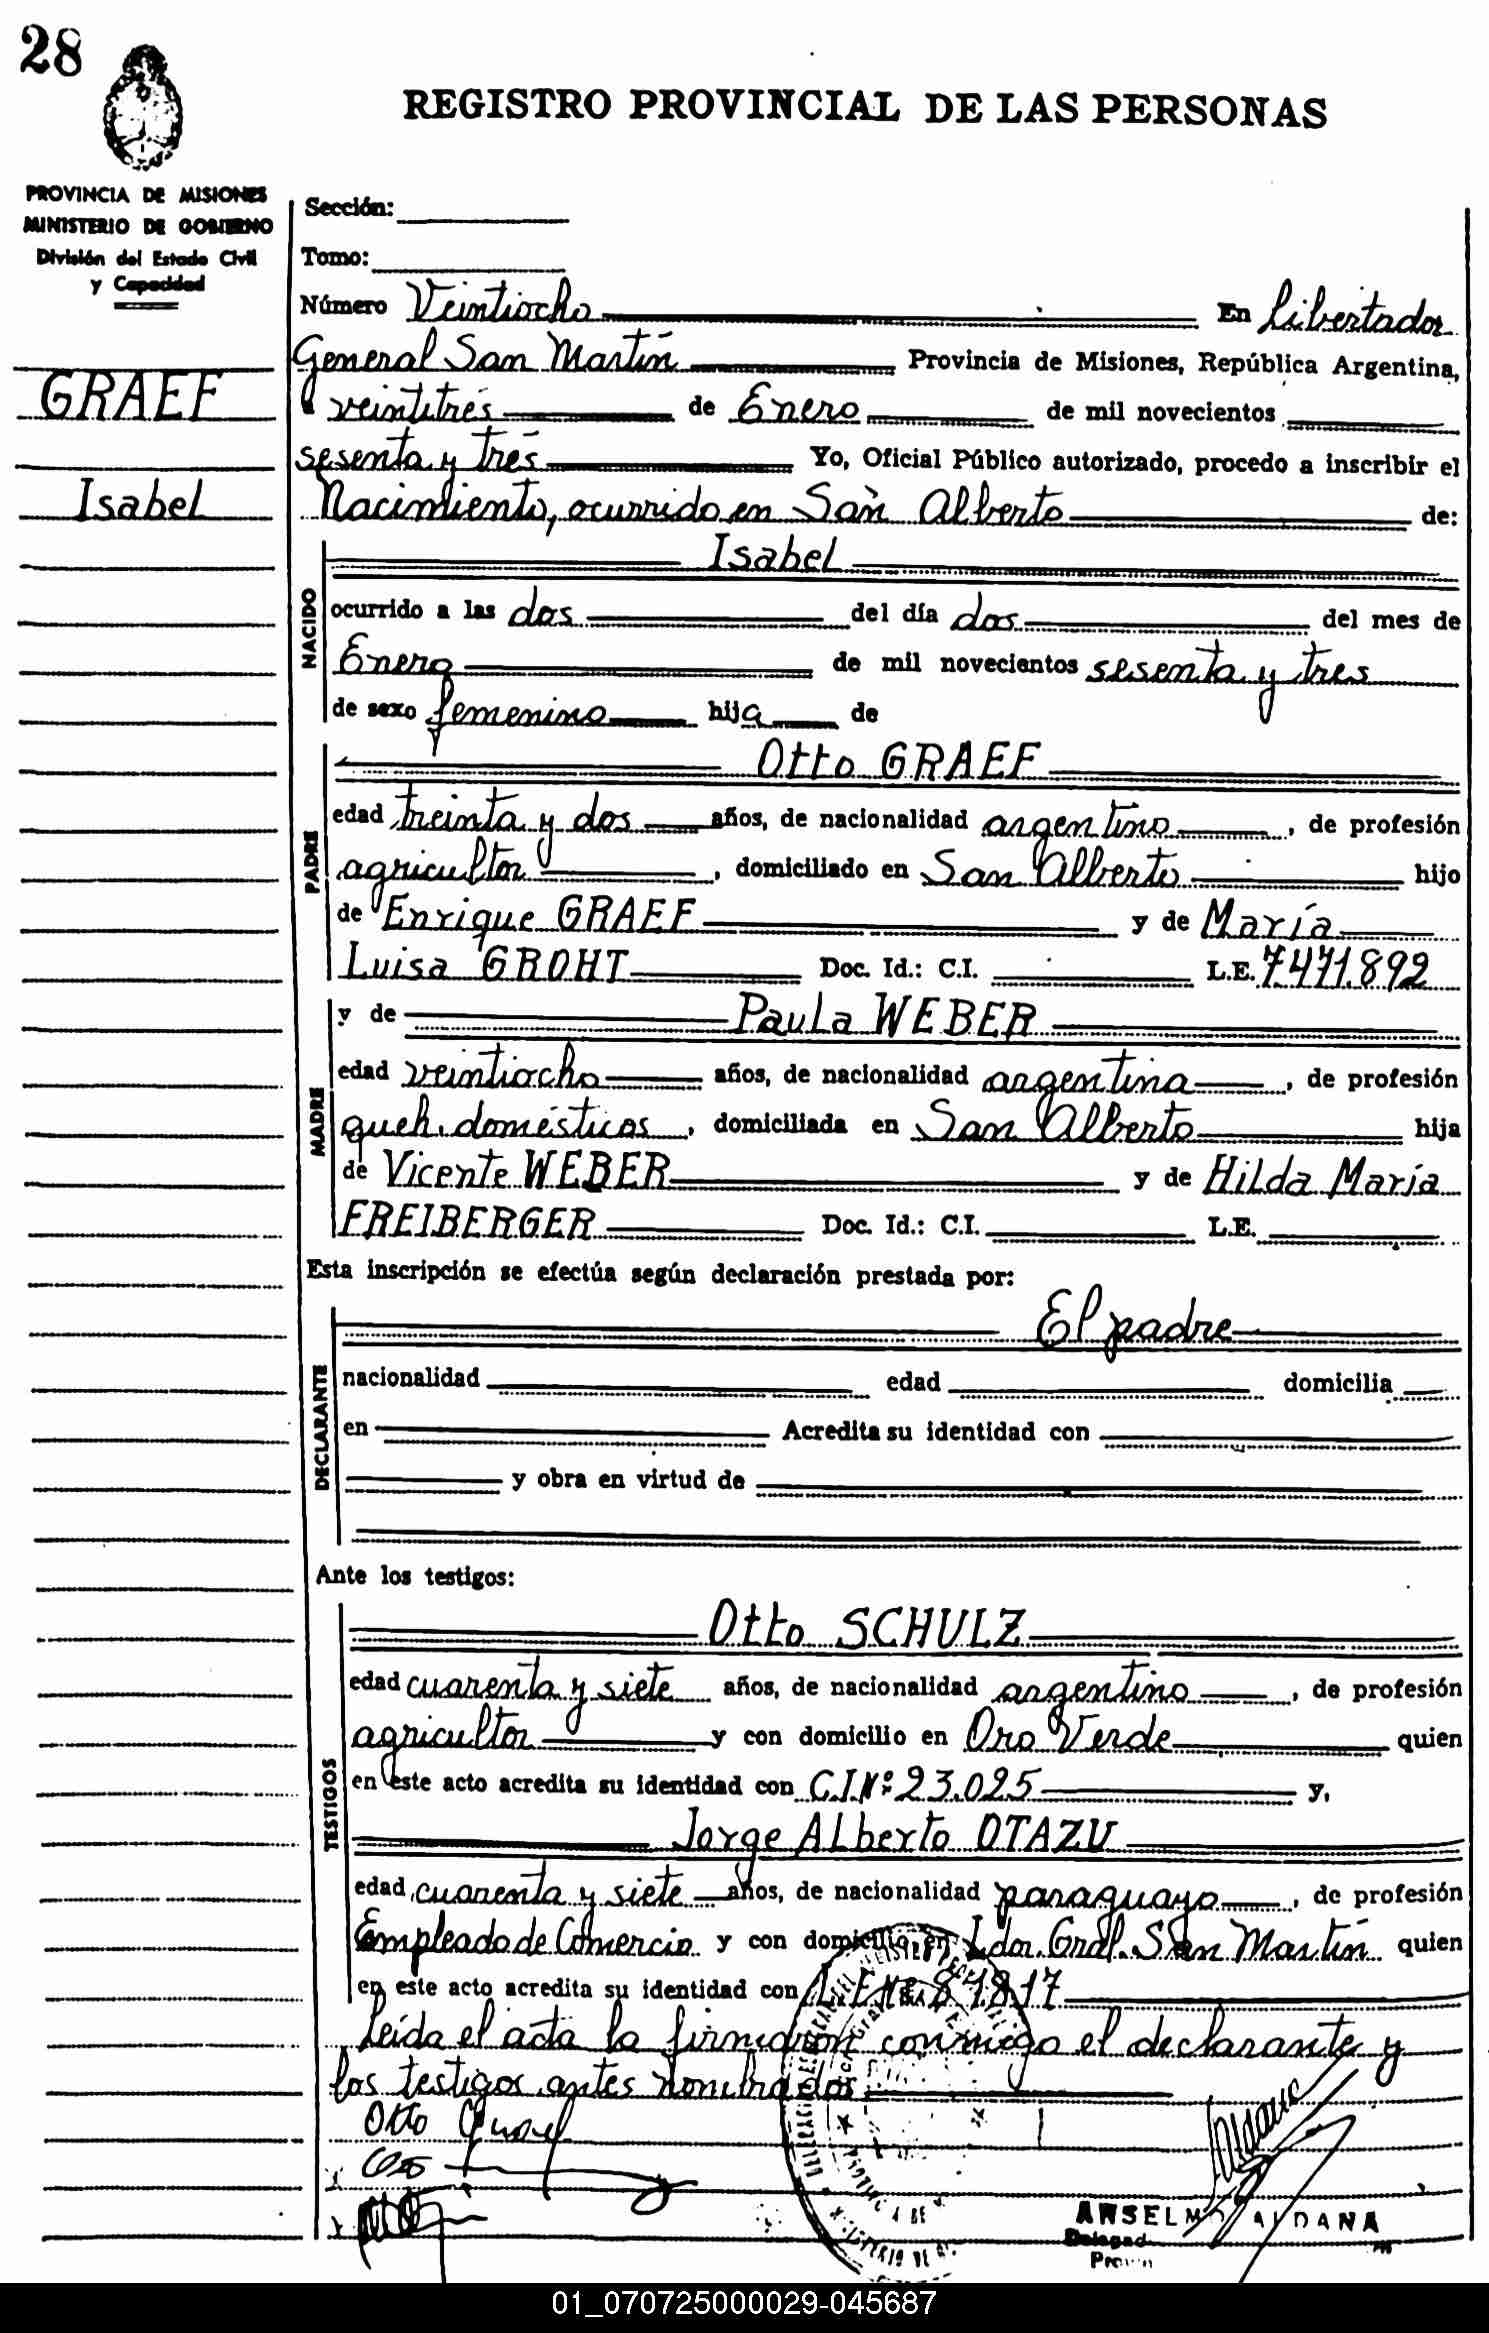 28
REGISTRO PROVINCIAL DE LAS PERSONAS
PROVINCIA DE MISIONES
MINISTERIO DE GOBIERNO
División del Estado Civil
y Capacidad
GRAEF
Isabel
Sección:
Tomo:
Número Veintiocho En Libertador
General San Martín Provincia de Misiones, República Argentina,
a veintitrés de Enero de mil novecientos
sesenta y trés Yo, Oficial Público autorizado, procedo a inscribir el
Nacimiento, ocurrido en San Alberto de:
NACIDO
Isabel
ocurrido a las dos del día dos del mes de
Enero de mil novecientos sesenta y tres
de sexo femenino hija de
PADRE
Otto GRAEF
edad treinta y dos años, de nacionalidad argentino, de profesión
agricultor, domiciliado en San Alberto hijo
de Enrique GRAEF y de María
Luisa GROHT Doc. Id.: C.I. L.E. 7.471.892
MADRE
y de Paula WEBER
edad veintiocho años, de nacionalidad argentina, de profesión
queh. domésticos, domiciliada en San Alberto hija
de Vicente WEBER y de Hilda María
FREIBERGER Doc. Id.: C.I. L.E.
Esta inscripción se efectúa según declaración prestada por:
DECLARANTE
El padre
nacionalidad edad domicilia
en Acredita su identidad con
y obra en virtud de
Ante los testigos:
TESTIGOS
Otto SCHULZ
edad cuarenta y siete años, de nacionalidad argentino, de profesión
agricultor y con domicilio en Oro Verde quien
en este acto acredita su identidad con C.I.Nº 23.025 y,
Jorge Alberto OTAZU
edad cuarenta y siete años, de nacionalidad paraguayo, de profesión
Empleado de Comercio y con domicilio en Ldor. Gral. San Martín quien
en este acto acredita su identidad con L.E.Nº 87817
Leída el acta la firmaron conmigo el declarante y
los testigos antes nombrados
Otto Graef
ANSELMO ALDANA
01_070725000029-045687